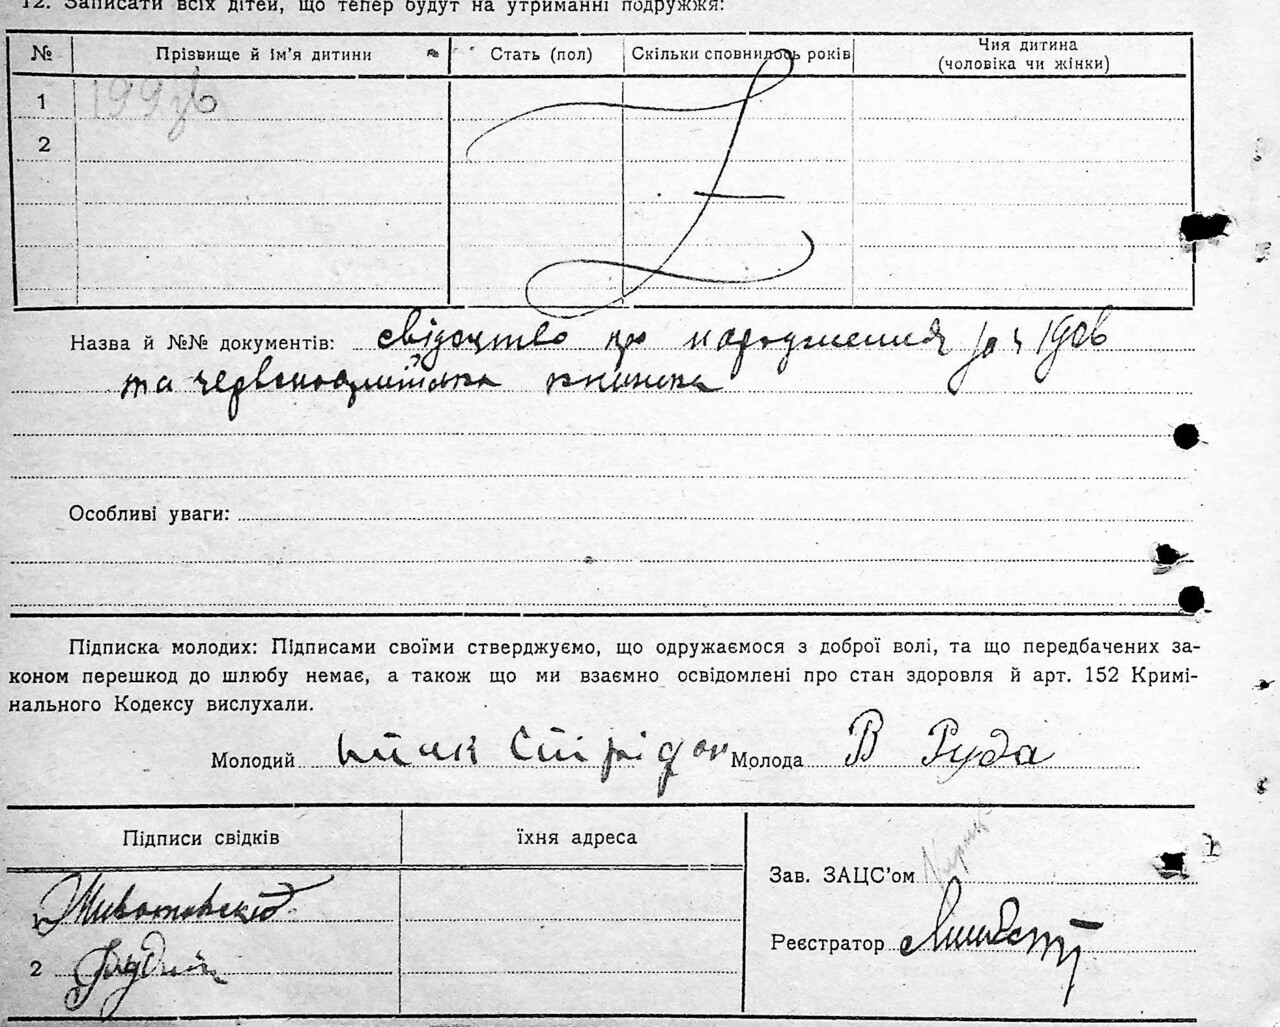 12. Записати всіх дітей, що тепер будут на утриманні подружжя:
№ Прізвище й ім'я дитини Стать (пол) Скільки сповнилось років Чия дитина (чоловіка чи жінки)
1
2
Назва й №№ документів: свідоцтво про народження
та червоноармійська книжка
Особливі уваги:
Підписка молодих: Підписами своїми стверджуємо, що одружаємося з доброї волі, та що передбачених за-
коном перешкод до шлюбу немає, а також що ми взаємно освідомлені про стан здоровля й арт. 152 Кримі-
нального Кодексу вислухали.
Молодий Молода В Руда
Підписи свідків їхня адреса
Зав. ЗАЦС'ом
1
Реєстратор
2